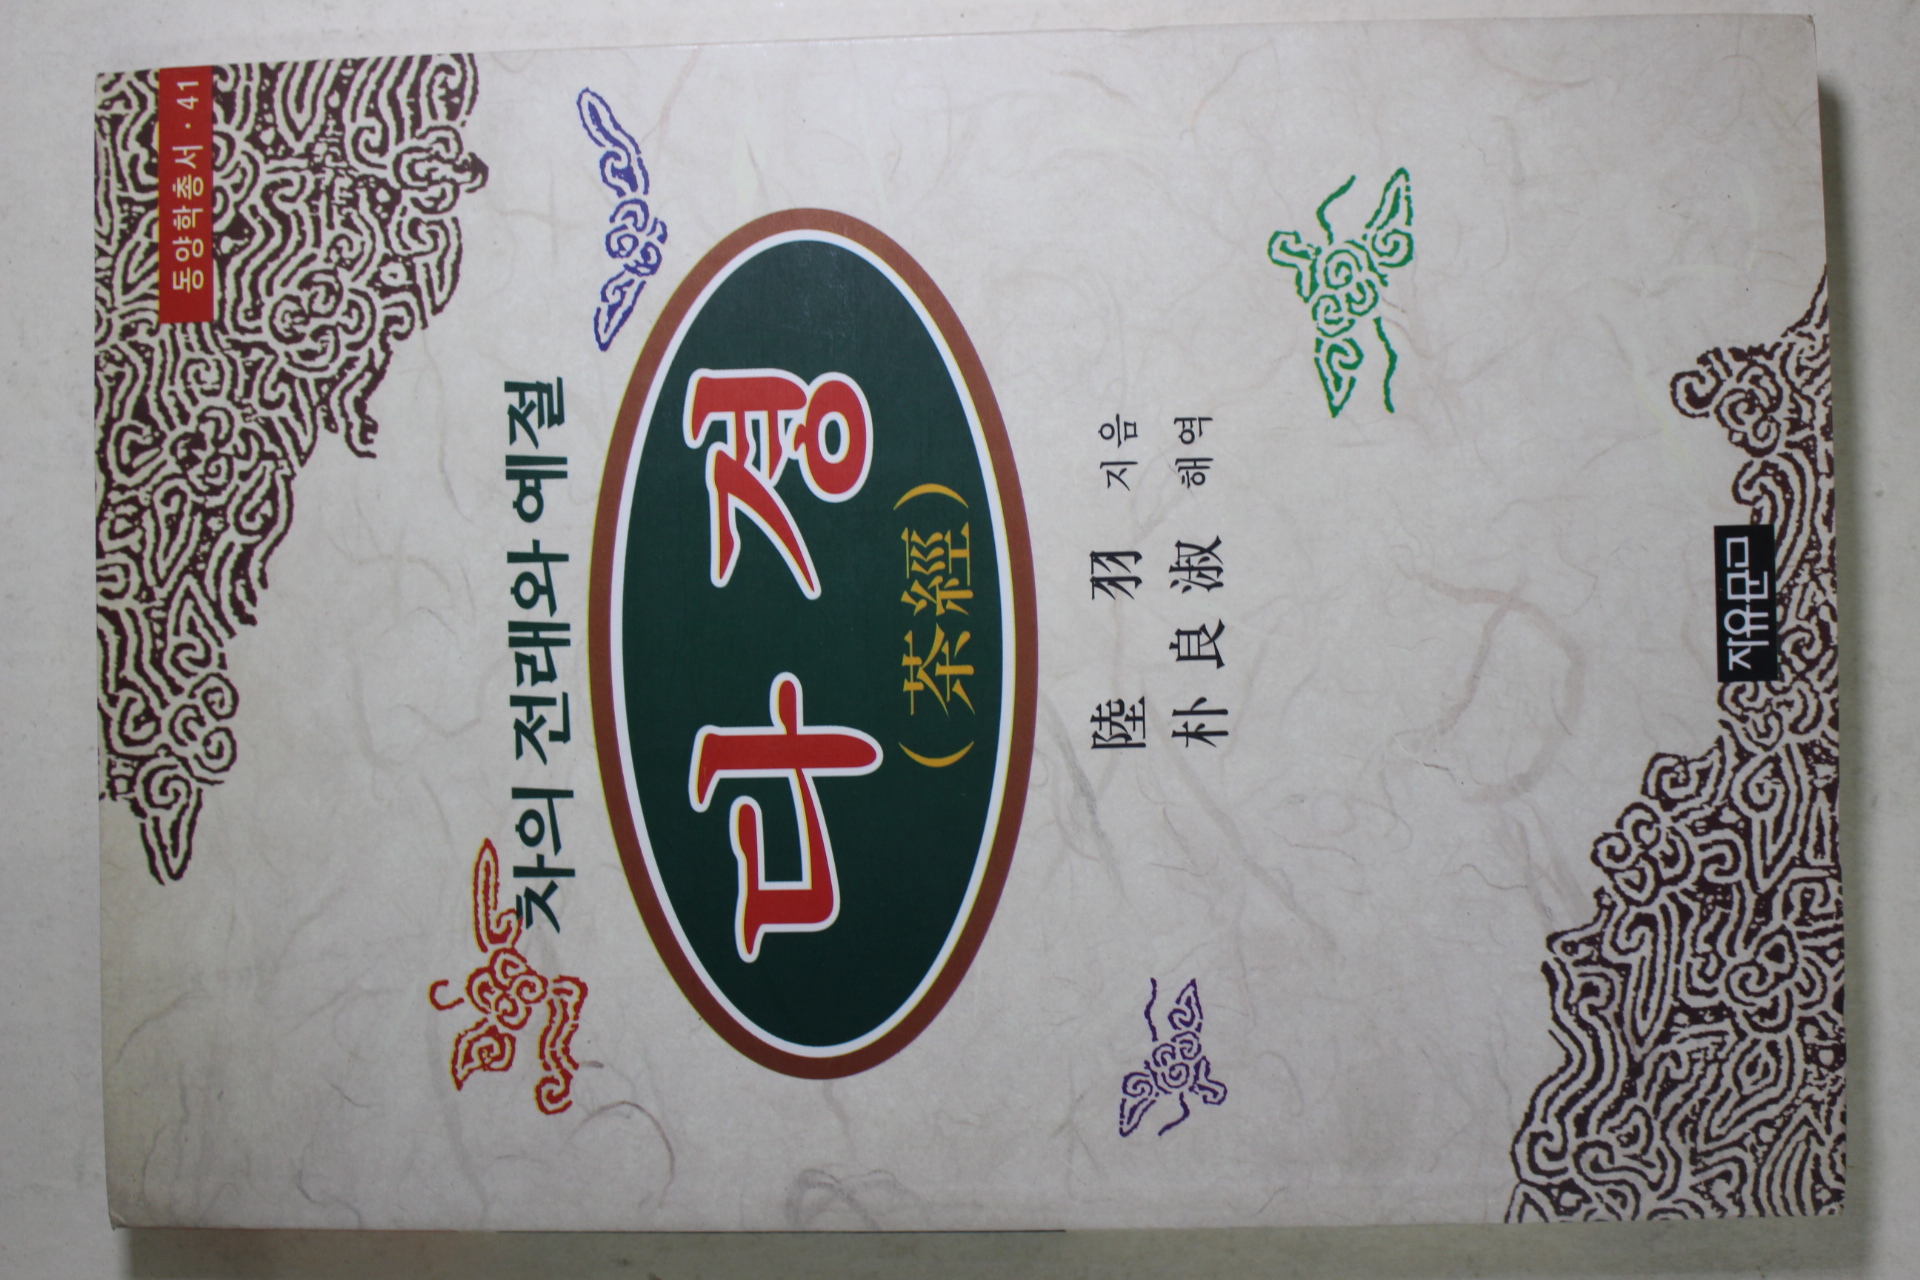 동양학총서·41
차의 전래와 예절
다 경
(茶經)
陸 羽 지음
朴良淑 해역
자유문고